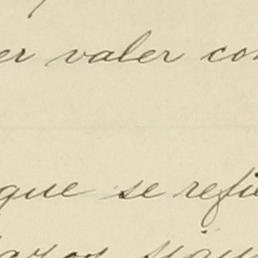 er valer con
que se refie